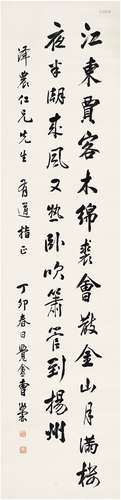 江東賈客木綿裘會散金山月滿樓
夜半潮來風又熟卧吹簫管到揚州
澤農仁兄先生 有道指正
丁卯春日 農髯曾熙